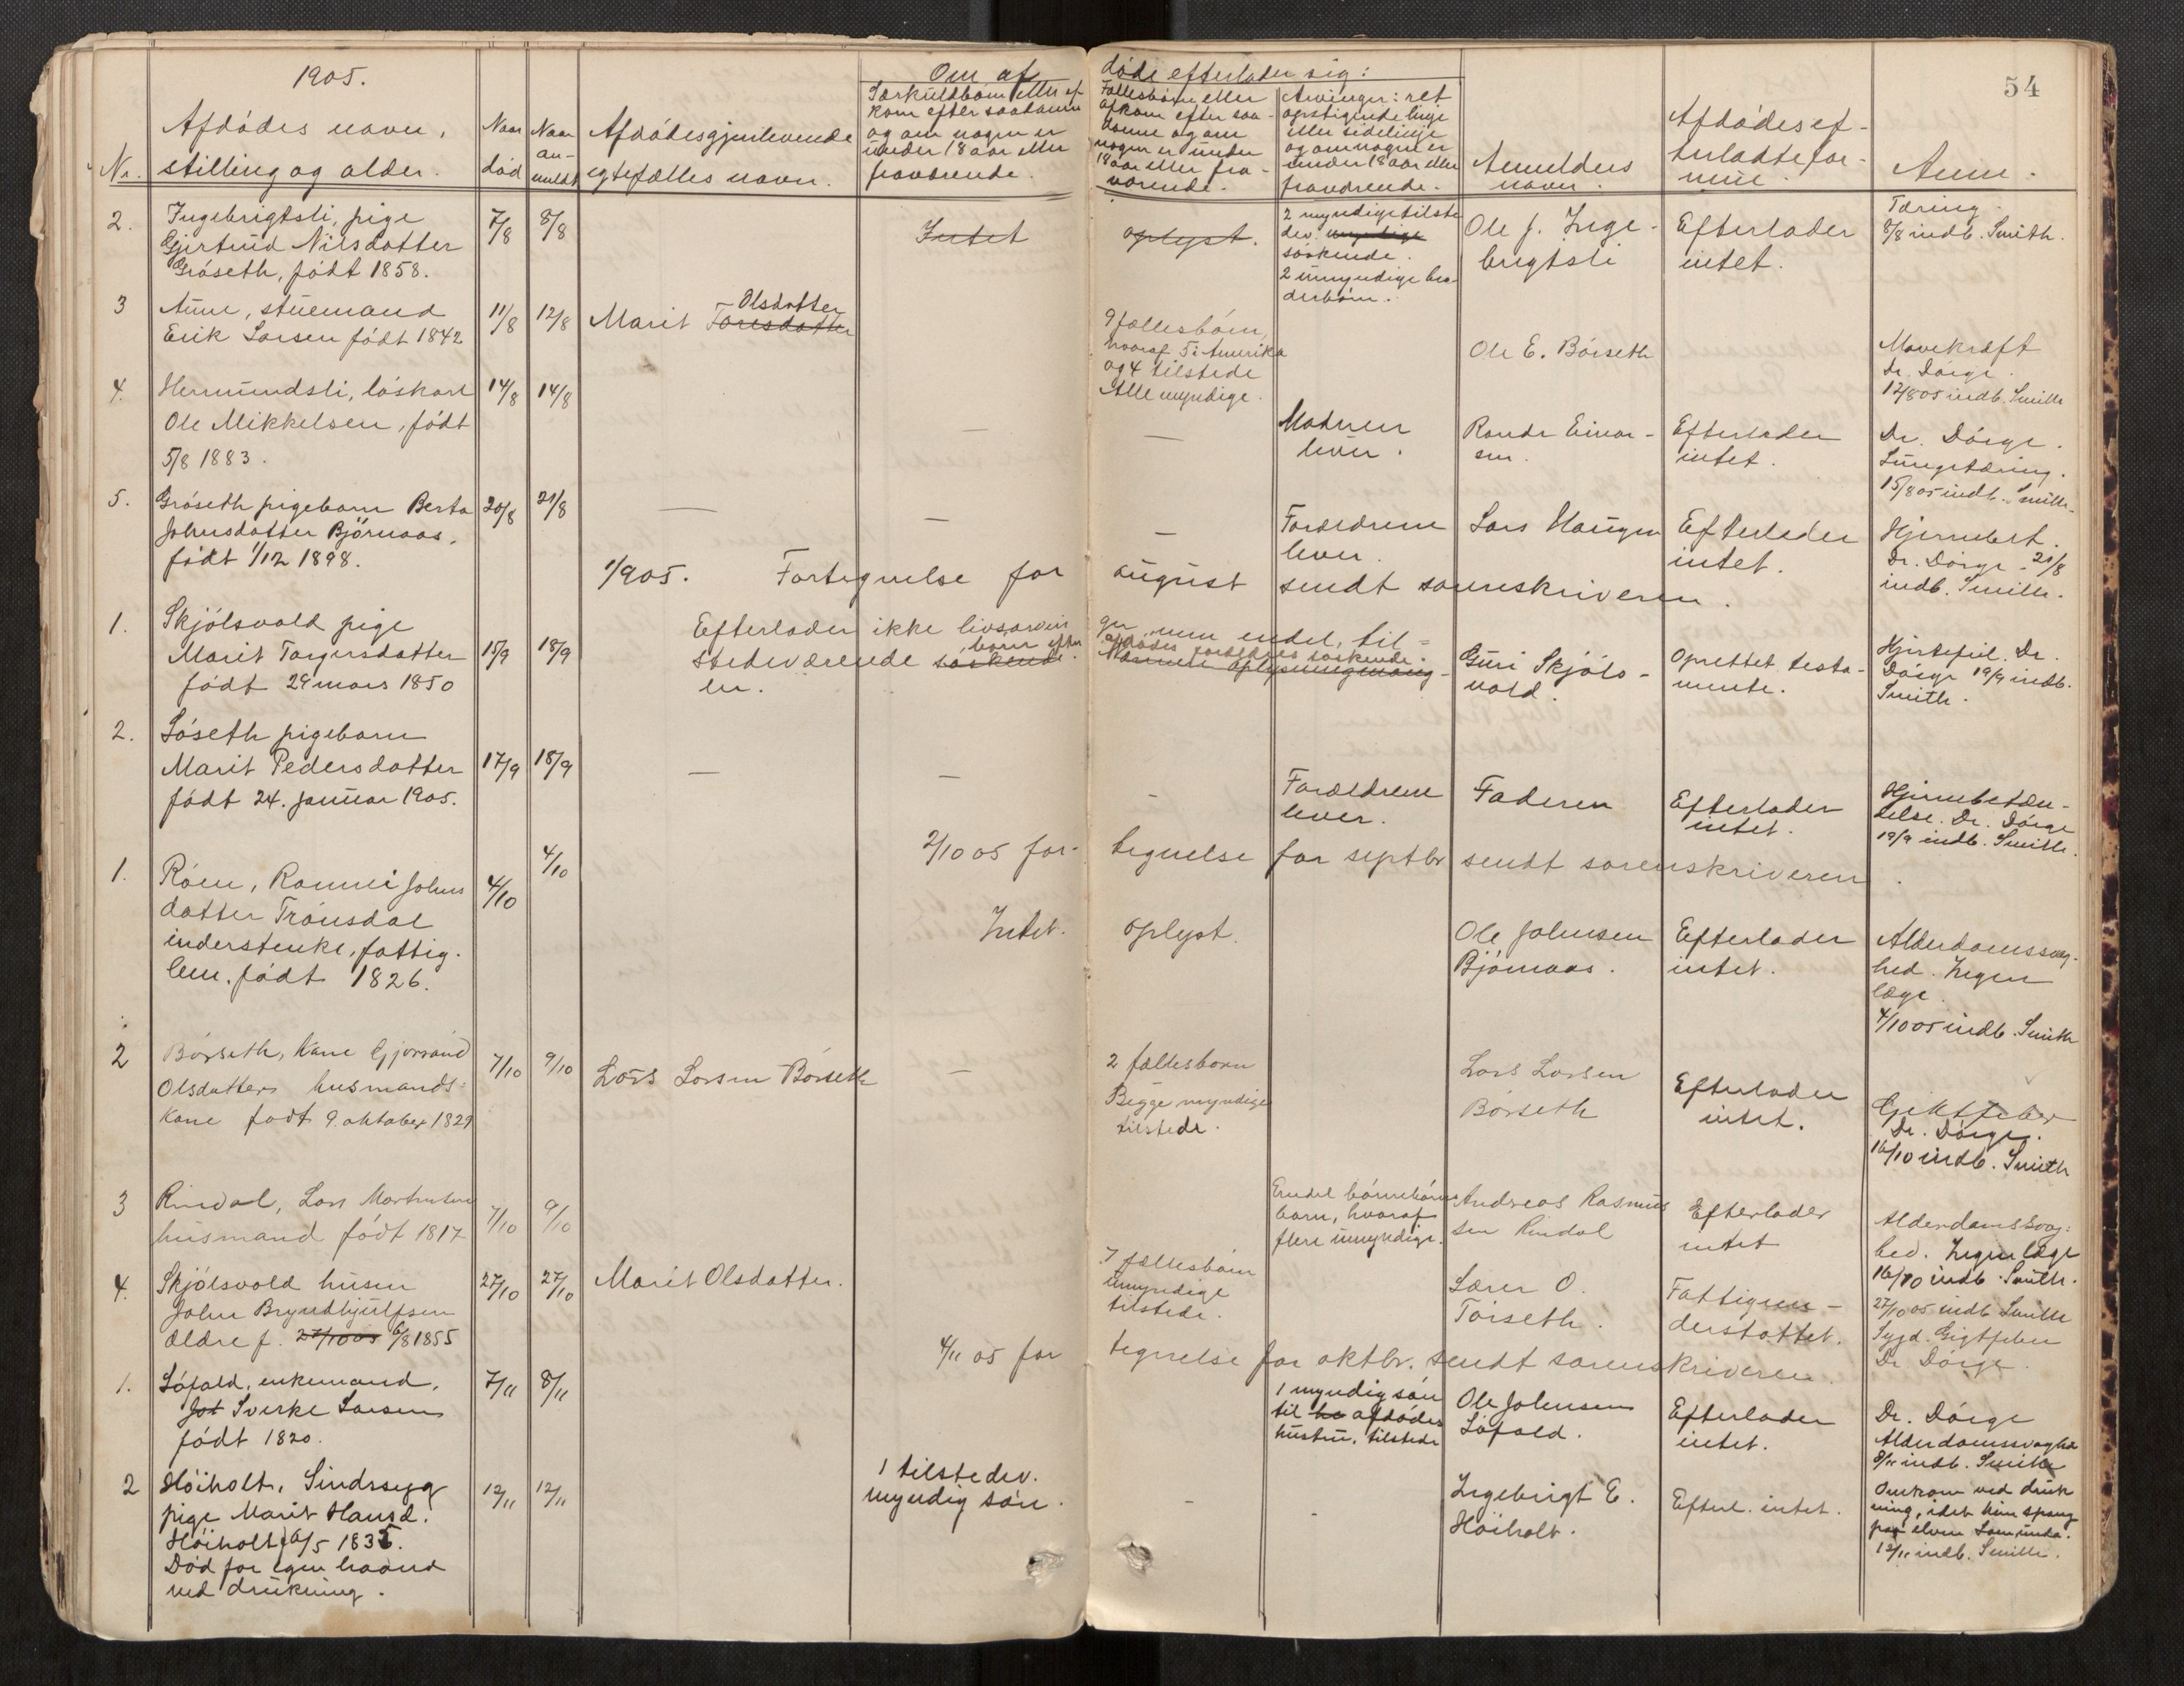 54
1905.
Om af døde efterlader sig:
Nr.
Afdødes navn,
stilling og alder.
Naar
død
Naar
an-
meldt
Afdødes gjenlevende
egtefælles navn.
Særkuldbørn eller af-
kom efter saadanne
og om nogen er
under 18 aar eller
fraværende.
Fællesbørn eller
afkom efter saa-
danne og om
nogen er under
18 aar eller fra-
værende.
Arvinger: ret
opstigende linje
eller sidelinje
og om nogen er
under 18 aar eller
fraværende.
Anmelders
navn.
Afdødes ef-
terladte for-
mue.
Anm.
2.
Ingebrigtsli, pige
Gjertrud Nilsdatter
Grøseth, født 1858.
7/8
8/8
Intet
oplyst.
2 myndige tilste
dev. myndige
søskende.
2 umyndige bro-
derbørn.
Ole J. Inge-
brigtsli
Efterlader
intet.
Tæring.
8/8 indb. Smith.
3
Aune, stuemand
Erik Larsen født 1842
11/8
12/8
Olsdatter
Marit Toresdatter
9 fællesbørn,
hvoraf 5 i Amerika
og 4 tilstede
Alle myndige.
Ole E. Børseth
Mavekræft
Dr. Dørge.
12/8 05 indb. Smith
4.
Hermundsli, løskarl
Ole Mikkelsen, født
5/8 1883.
14/8
14/8
—
—
Moderen
lever.
Rande Einar-
sen.
Efterlader
intet.
Dr. Dørge.
Lungetæring.
15/8 05 indb. Smith.
5.
Grøseth pigebarn Berta
Johnsdatter Bjørnaas,
født 1/12 1898.
20/8
21/8
—
—
—
Forældrene
lever.
Lars Haugen
Efterlader
intet.
Hjernebet.
Dr. Dørge. 21/8
indb. Smith.
1/905. Fortegnelse for august sendt sorenskriveren.
1.
Skjølsvold pige
Marit Torgersdatter
født 29 mars 1850
15/9
18/9
Efterlader ikke livsarvinger, men endel, til-
børn efter afdødes forældres søskende.
stedeværende søskende. Nærmere oplysning mang-
ler.
Guri Skjøls-
vold.
Oprettet testa-
mente.
Hjertefeil. Dr.
Dørge 19/9 indb.
Smith.
2.
Løseth pigebarn
Marit Pedersdatter
født 24. januar 1905.
17/9
18/9
—
—
-
Forældrene
lever.
Faderen
Efterlader
intet.
Hjernebetæn-
delse. Dr. Dørge
19/9 indb. Smith.
2/10 05 fortegnelse for septbr sendt sorenskriveren.
1.
Røen, Rannei Johns
datter Trønsdal
inderstenke, fattig-
lem. født 1826.
4/10
4/10
Intet.
oplyst.
Ole Johnsen
Bjørnaas.
Efterlader
intet.
Alderdomssvag-
hed. Ingen
læge.
4/10 05 indb. Smith
2
Børseth, Kane Gjørrønd
Olsdatter husmands-
kone født 9. oktober 1829
7/10
9/10
Lars Larsen Børseth
—
2 fællesbørn
Begge myndige
tilstede.
Lars Larsen
Børseth
Efterlader
intet.
Gjktfeber
Dr. Dørge.
16/10 indb. Smith
3
Rindal, Lars Mortensen
husmand født 1817
7/10
9/10
Endel børnebørns
børn, hvoraf
flere umyndige.
Andreas Rasmus
sen Rindal
Efterlader
intet
Alderdomssvag-
hed. Ingen læge
16/10 indb. Smith.
4.
Skjølsvold husm
John Bryndhjulfsen
ældre f. 27/10 05 6/8 1855
27/10
27/10
Marit Olsdatter.
7 fællesbørn
umyndige
tilstede.
Lærer O.
Tørseth.
Fattigun-
derstøttet.
27/10 05 indb Smith
Sygd. Gigtfeber
Dr. Dørge.
4/11 05 fortegnelse for oktbr. sendt sorenskriveren.
1.
Løfald, enkemand,
Jot Sverke Larsen
født 1820.
7/11
8/11
1 myndig søn
til he afdødes
hustru, tilstede
Ole Johnsen
Løfald.
Efterlader
intet.
Dr. Dørge
Alderdomssvaghed
8/11 indb. Smith
2
Høiholt, Sindssyg
pige Marit Hansd.
Høiholt f 6/5 1835.
Død for egen haand
ved drukning.
12/11
12/11
1 tilstedev.
myndig søn.
-
-
Ingebrigt E.
Høiholt.
Efterl. intet.
Omkom ved druk
ning, idet hun sprang
paa elven
12/11 indb. Smith.